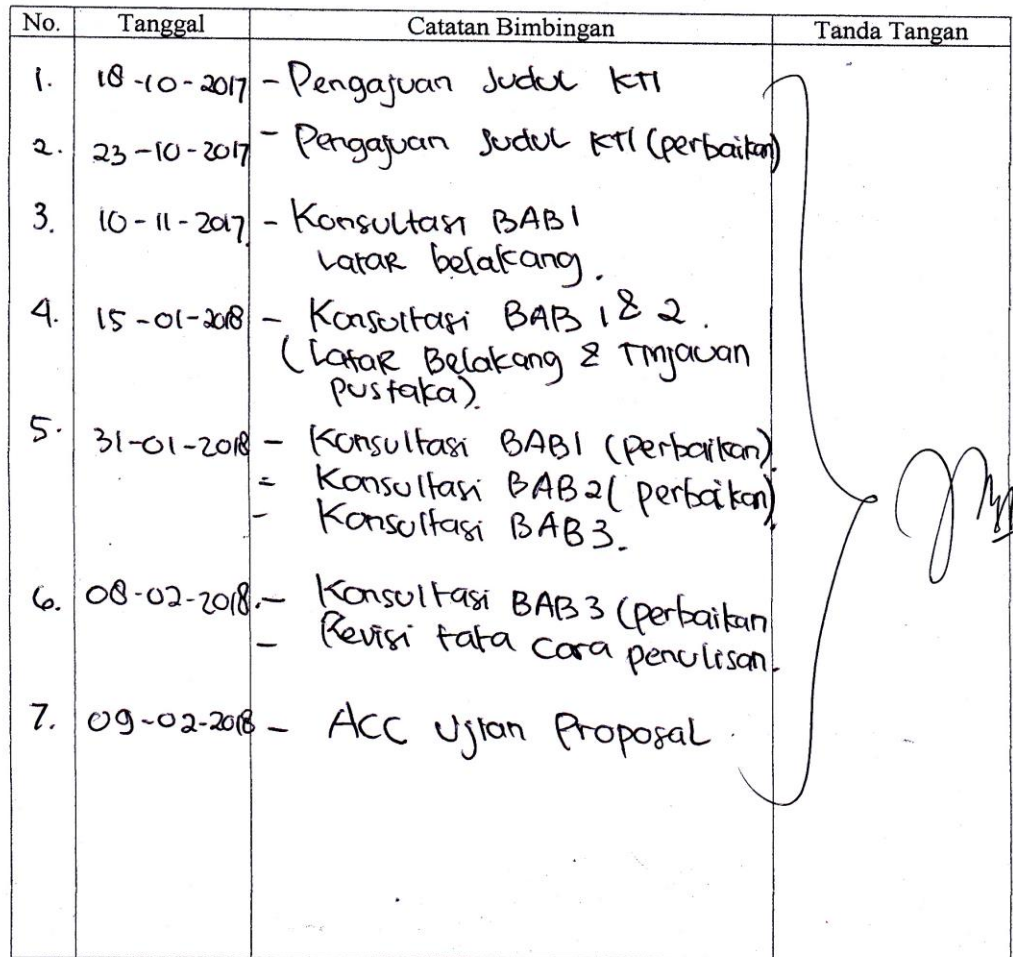 No. Tanggal Catatan Bimbingan Tanda Tangan
1. 18-10-2017 - Pengajuan Judul KTI
2. 23-10-2017 - Pengajuan Judul KTI (perbaikan)
3. 10-11-2017 - Konsultasi BAB 1
Latar belakang.
4. 15-01-2018 - Konsultasi BAB 1 & 2.
(Latar Belakang & Tinjauan
pustaka).
5. 31-01-2018 - Konsultasi BAB 1 (perbaikan).
- Konsultasi BAB 2 (perbaikan).
- Konsultasi BAB 3.
6. 08-02-2018. - Konsultasi BAB 3 (perbaikan
- Revisi tata cara penulisan.
7. 09-02-2018 - ACC Ujian Proposal